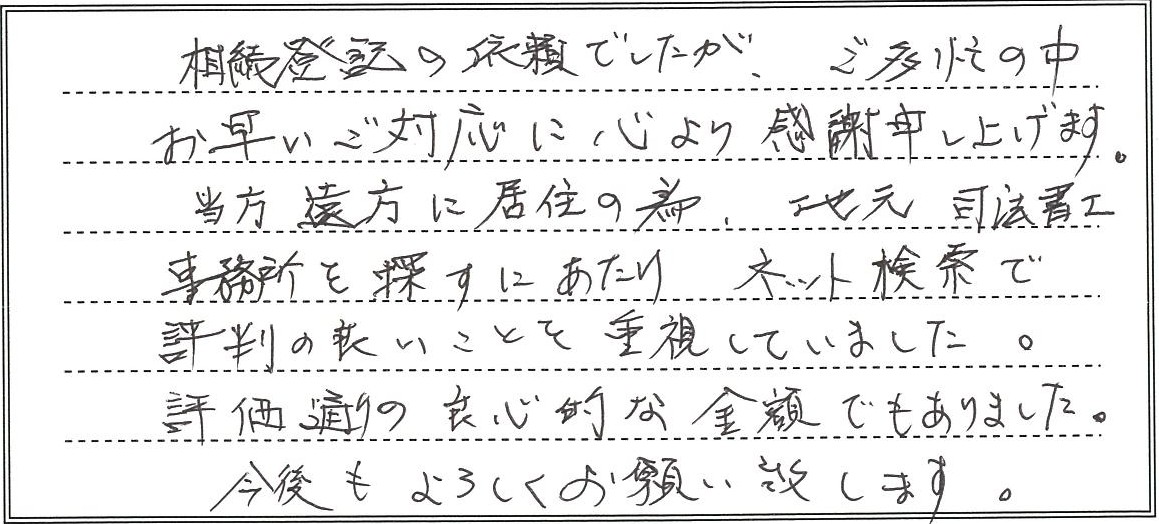 相続登記の依頼でしたが、ご多忙の中
お早いご対応に心より感謝申し上げます。
当方遠方に居住の為、地元司法書士
事務所を探すにあたり ネット検索で
評判の良いことを重視していました。
評価通りの良心的な金額でもありました。
今後もよろしくお願い致します。